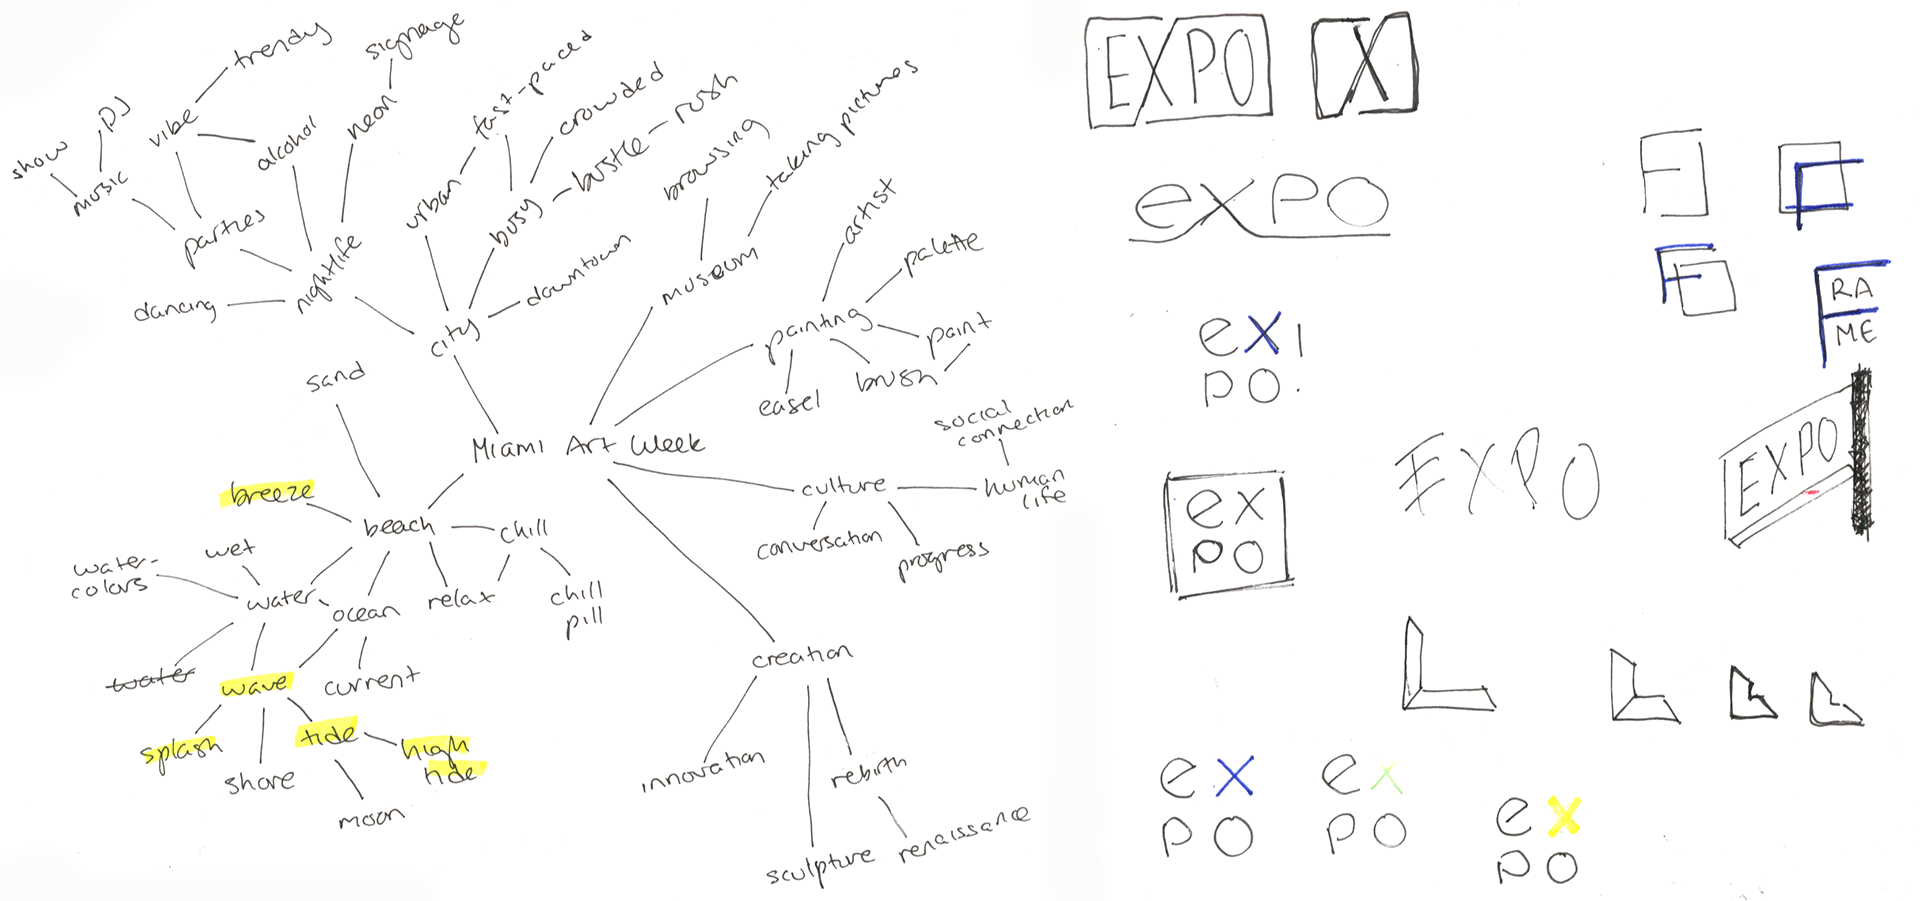 trendy
signage
DJ
vibe
show
music
alcohol
neon
parties
nightlife
dancing
fast-paced
crowded
urban
busy
bustle
rush
downtown
city
browsing
taking pictures
museum
artist
palette
painting
paint
brush
easel
sand
Miami Art Week
breeze
beach
chill
chill
pill
relax
wet
water-
colors
water
ocean
water
wave
current
splash
shore
tide
high
tide
moon
social
connection
culture
human
life
conversation
progress
creation
innovation
rebirth
renaissance
sculpture
EXPO
X
expo
ex!
po
F
F
F
RA
ME
EXPO
EXPO
ex
po
ex
po
ex
po
ex
po